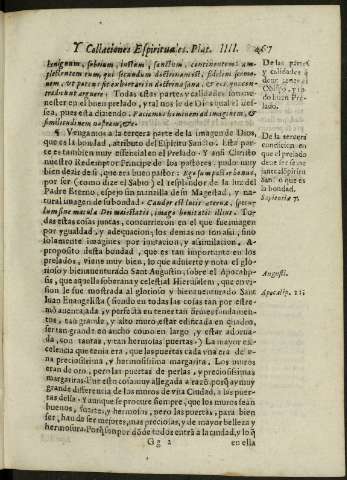 Y Collationes Espirituales. Plat. IIII. 467
benignum, sobrium, iustum, sanctum, continentem: am-
plectentem eum, qui secundum doctrinam est, fidelem sermo-
nem, ut potens sit exhortari in doctrina sana, & eos, qui con-
tradicunt arguere. Todas estas partes y calidades son me-
nester en el buen prelado, y tal nos le de Dios qual el def-
sea, pues esta diziendo. Faciamus hominem ad imaginem, &
similitudinem nostram, &c.
¶ Vengamos a la tercera parte de la imagen de Dios,
que es la bondad, atributo del Espiritu Sancto. Esta par-
te es tambien muy essencial en el Prelado. Y assi Christo
nuestro Redemptor Principe de los pastores, pudo muy
bien dezir de si, que era buen pastor: Ego sum pastor bonus,
por ser (como dize el Sabio) el resplandor de la luz del
Padre Eterno, espejo sin manzilla de su Magestad, y na-
tural imagen de su bondad: Candor est lucis æternæ, specu-
lum sine macula Dei maiestatis, imago bonitatis illius. To-
das estas cosas juntas, concurrieron en el que fue imagen
por ygualdad, y adequacion; los demas no son assi, sino
solamente imagines por imitacion, y assimilacion. A-
proposito desta bondad, que es tan importante en los
prelados, viene muy bien, lo que advierte y nota el glo-
rioso y bienaventurado Sant Augustin, sobre el Apocalip-
sis, que aquella soberana y celestial Hierusalem, que en vi-
sion le fue mostrada al glorioso y bienaventurado Sant
Juan Evangelista (siendo en todas las cosas tan por estre-
mo aventajada, y perfecta en tener tan firmes fundamen-
tos, tan grande, y alto muro, estar edificada en quadro,
ser tan grande en ancho como en largo, y estar adorna-
da, con tantas, y tan hermosas puertas) La mayor ex-
celencia que tenia era, que las puertas cada vna era de v-
na preciosissima, y hermosissima margarita. Los muros
eran de oro, pero las puertas de perlas, y preciosissimas
margaritas. Fue esto cosa muy allegada a razõ, porq̃ ay muy
grande differencia de los muros de vna Ciudad, a las puer-
tas della. Y aunque se procure siempre, que los muros sean
buenos, fuertes, y hermosos, pero las puertas, para bien
ser, han de ser mejores, mas preciosas, y de mayor belleza y
hermosura. Porq̃ son por dõde todos entrã a la ciudad, y lo q̃
Gg 2 en ella
De las partes
y calidades q̃
deue tener el
Obispo, y to
do buen Pre-
lado.
De la tercera
condicion, en
que el prelado
deue ser seme
jante al Spiritu
Santo que es
la bondad.
Sapientiæ 7.
Augusti.
Apocalip. 21.